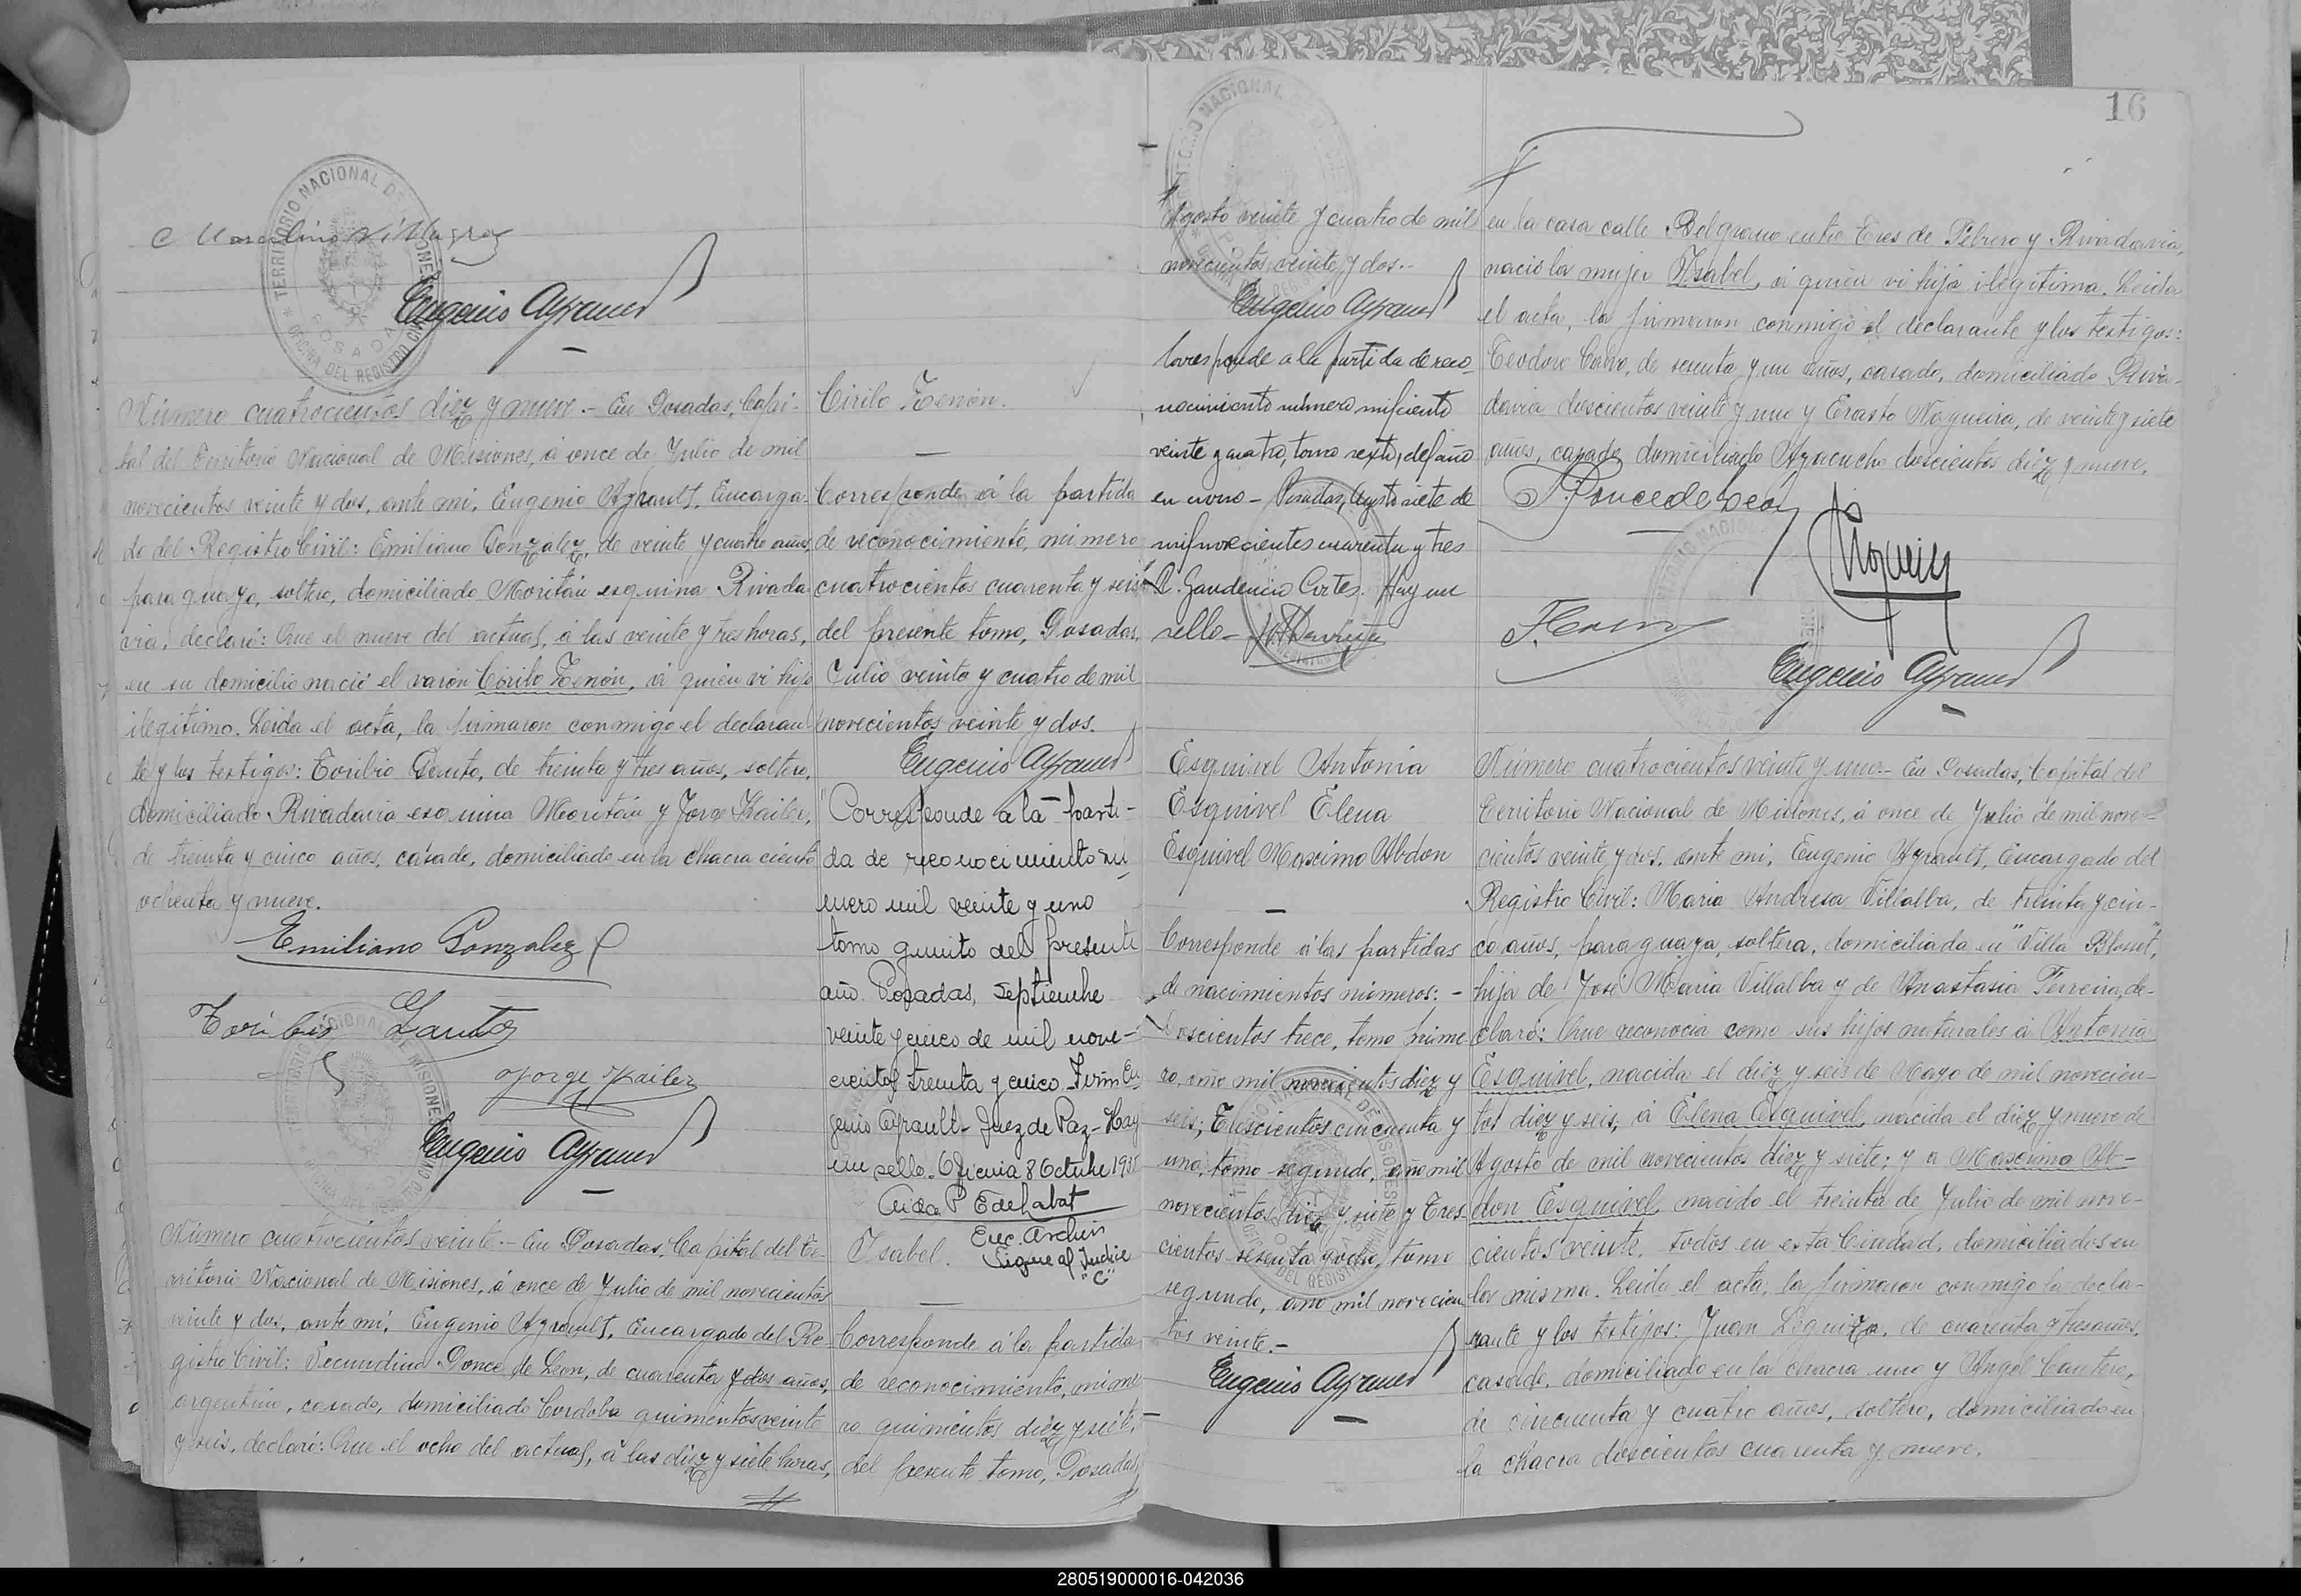 16
C Marcelino Villagra
Eugenio Ayrault
Número cuatrocientos diez y nueve.- En Posadas, Capi-
tal del Territorio Nacional de Misiones, á once de Julio de mil
novecientos veinte y dos, ante mi, Eugenio Ayrault, Encarga-
do del Registro Civil: Emiliano Gonzalez, de veinte y cuatro años,
paraguayo, soltero, domiciliado Moritán esquina Rivada-
via, declaró: Que el nueve del actual, á las veinte y tres horas,
en su domicilio nació el varón Cirilo Zenón, á quien vi hijo
ilegítimo. Leida el acta, la firmaron conmigo el declaran-
te y los testigos: Toribio Santo, de treinta y tres años, soltero,
domiciliado Rivadavia esquina Moritán y Jorge Kailer,
de treinta y cinco años, casado, domiciliado en la chacra ciento
ochenta y nueve.
Emiliano Gonzalez
Toribio Santos
Jorge Kailer
Eugenio Ayrault
Número cuatrocientos veinte.- En Posadas, Capital del Te-
rritorio Nacional de Misiones, á once de Julio de mil novecientos
veinte y dos, ante mi, Eugenio Ayrault, Encargado del Re-
gistro Civil: Secundino Ponce de Leon, de cuarenta y dos años,
argentino, casado, domiciliado Cordoba quinientos veinte
y seis, declaró: Que el ocho del actual, á las diez y siete horas,
Cirilo Zenón.
Corresponde á la partida
de reconocimiento, número
cuatrocientos cuarenta y seis
del presente tomo, Posadas,
Julio veinte y cuatro de mil
novecientos veinte y dos.
Eugenio Ayrault
"Corresponde a la parti-
da de reconocimiento nu-
mero mil veinte y uno
tomo quinto del presente
año. Posadas, septiembre
veinte y cinco de mil nove-
cientos treinta y cinco. Firm. Eu-
genio Ayrault- Juez de Paz- Hay
un sello. Oficina 8 Octubre 1935
Aida P Edelabat
Enc. Archivo
Sigue al Indice
"C"
Isabel.
Corresponde á la partida
de reconocimiento, núme-
ro quinientos diez y siete,
del presente tomo, Posadas,
Agosto veinte y cuatro de mil
novecientos veinte y dos.-
Eugenio Ayrault
Corresponde a la partida de reco-
nocimiento número mil ciento
veinte y cuatro, tomo sexto, del año
en curso- Posadas, Agosto siete de
mil novecientos cuarenta y tres
R. Gaudencio Cortes. Hay un
sello-
Esquivel Antonia
Esquivel Elena
Esquivel Maximo Abdon
Corresponde á las partidas
de nacimientos números: -
Doscientos trece, tomo prime-
ro, año mil novecientos diez y
seis; Trescientos cincuenta y
uno, tomo segundo, año mil
novecientos diez y siete y Tres-
cientos sesenta y ocho, tomo
segundo, año mil novecien-
tos veinte.-
Eugenio Ayrault
en la casa calle Belgrano entre Tres de Febrero y Rivadavia,
nació la mujer Isabel, á quien vi hija ilegítima. Leida
el acta, la firmaron conmigo el declarante y los testigos:
Teodoro Calvo, de sesenta y un años, casado, domiciliado Riva-
davia doscientos veinte y uno y Erasto Nogueira, de veinte y siete
años, casado, domiciliado Ayacucho doscientos diez y nueve.
S. Ponce de Leon
Eugenio Ayrault
Número cuatrocientos veinte y uno.- En Posadas, Capital del
Territorio Nacional de Misiones, á once de Julio de mil nove-
cientos veinte y dos, ante mi, Eugenio Ayrault, Encargado del
Registro Civil: Maria Andresa Villalba, de treinta y cin-
co años, paraguaya, soltera, domiciliada en "Villa Blosset",
hija de José Maria Villalba y de Anastasia Ferreira, de-
claró: Que reconocia como sus hijos naturales á Antonia
Esquivel, nacida el diez y seis de Mayo de mil novecien-
tos diez y seis; á Elena Esquivel, nacida el diez y nueve de
Agosto de mil novecientos diez y siete; y a Maximo Ab-
don Esquivel, nacido el treinta de Julio de mil nove-
cientos veinte, todos en esta Ciudad, domiciliados en
la misma. Leida el acta, la firmaron conmigo la decla-
rante y los testigos: Juan Leguiza, de cuarenta y tres años,
casado, domiciliado en la chacra uno y Angel Cantero,
de cincuenta y cuatro años, soltero, domiciliado en
la chacra doscientos cuarenta y nueve.
280519000016-042036